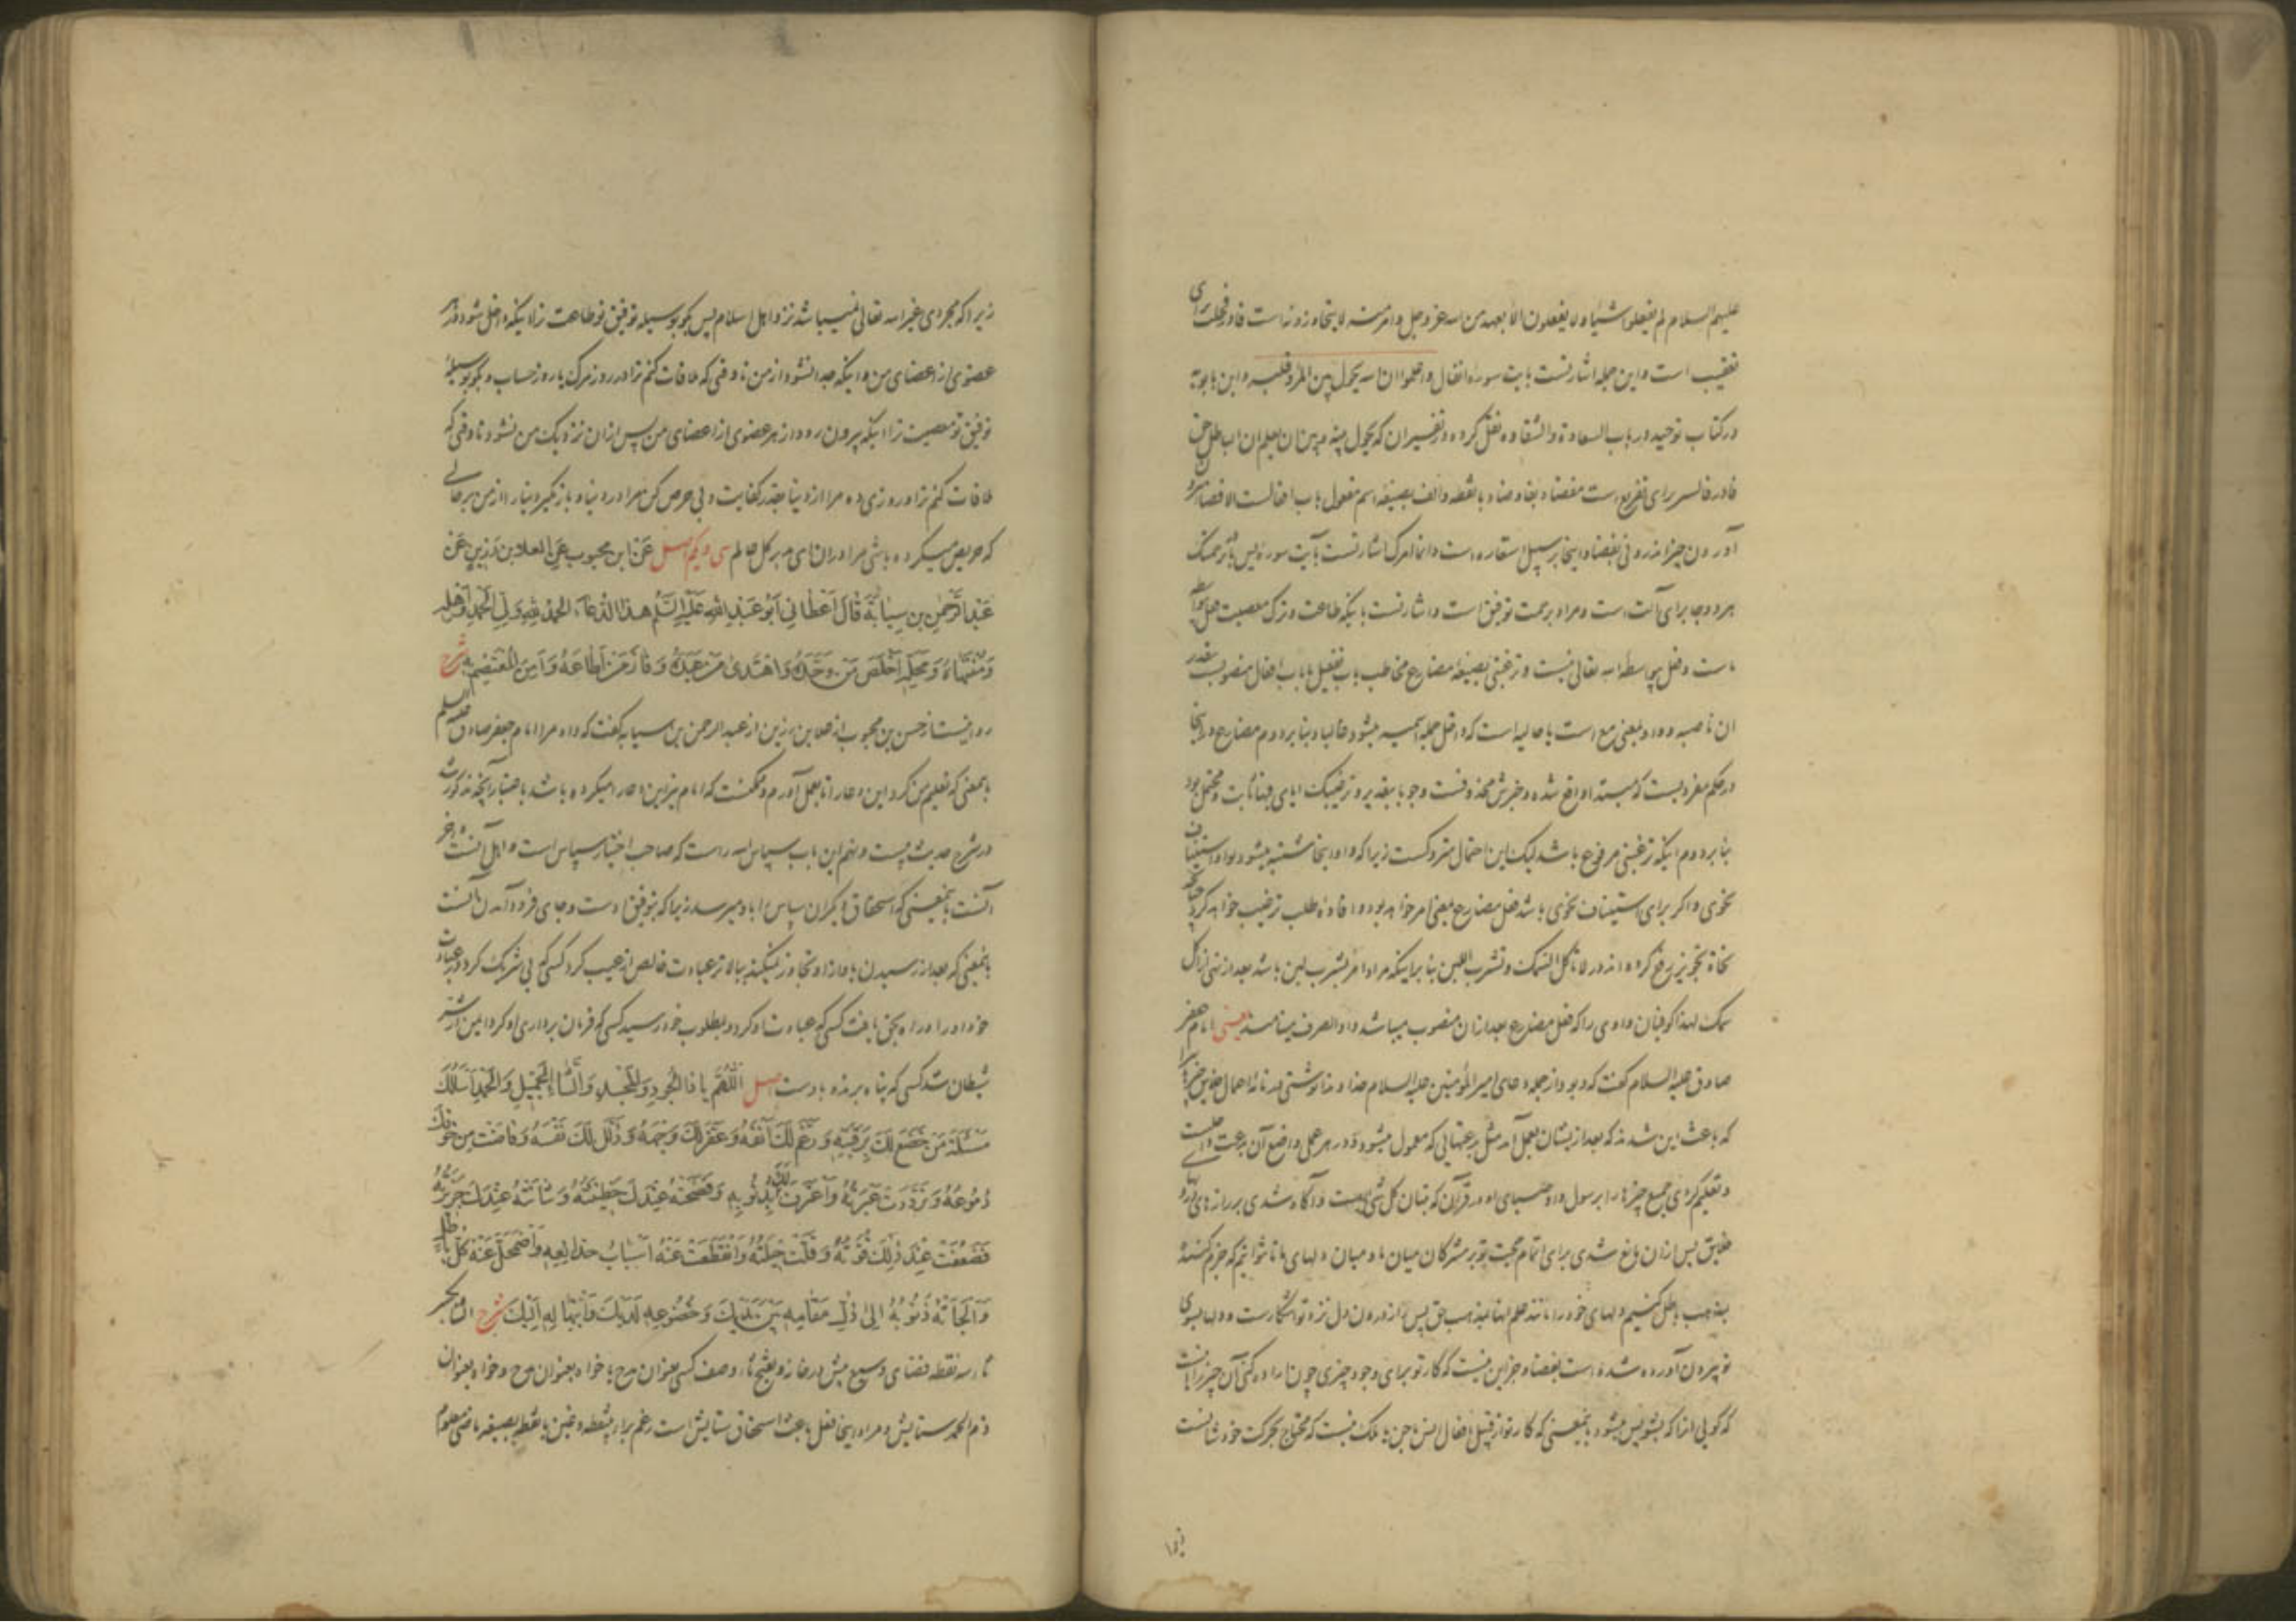 علیهم السلام لم یفعلوا شیئا ولا یفعلون الا بعهد من الله عز و جل و امر منه لا یتجاوزونه است فا در فحلت برای
تعقیب است و این جمله اشارتست بآیت سوره انفال و اعلموا ان الله یحول بین المرء و قلبه و ابن بابویه
در کتاب توحید در باب السعادة و الشقاوه نقل کرده در تفسیر آن که یحول بینه و بین ان یعلم ان الباطل حق
فا در برای تفریع است مفضاه بفا و ضاد با نقطه و الف بصیغه اسم مفعول باب افعالست الافضاء
آوردن چیز اندرونی بفضا و اینجا بر سبیل استعاره است و انما امرک اشارتست بآیت سوره یس
هر دو جا برای آلت است و مراد برحمت توفیق است و اشارتست باینکه طاعت و ترک معصیت
است و فعل بی واسطه الله تعالی نیست و ترغبنی بصیغه مضارع مخاطب باب تفعیل یا باب افعال منصوب بتقدیر
ان ناصبه و واو بمعنی مع است یا حالیه است که داخل جمله اسمیه میشود غالبا و بنا بر دوم مضارع در اینجا
در حکم مفردیست که مبتدا واقع شده و خبرش محذوفست وجوبا بتقدیر و ترغیبک ایای فیها ثابت و محتمل بود
بنا بر دوم اینکه ترغبنی مرفوع باشد لیک این احتمال متروکست زیرا که واو اینجا مشتبه میشود بواو استیناف
نحوی و اگر برای استیناف نحوی باشد فعل مضارع بمعنی امر خواهد بود و افاده طلب ترغیب خواهد کرد چنانچه
نحاة تجویز رفع کرده اند در لا تأکل السمک و تشرب اللبن بنا بر اینکه مراد امر بشرب لبن باشد بعد از نهی از اکل
سمک لهذا کوفیان واوی را که فعل مضارع بعد از آن منصوب میباشد واو الصرف مینامند یعنی امام جعفر
صادق علیه السلام گفت که و بود از جمله دعای امیر المؤمنین علیه السلام خداوندا نوشتی
که باعث این شدند که بعد از ایشان بعمل آمد مثل بدعتهایی که معمول میشود و در هر عملی واضع آن بدعت
و تعلیم کردی جمیع چیزها را برسول و اوصیای او در قرآن که تبیان کل شیء است و آگاه شدی بر رازهای
خلایق پس از آن مانع شدی برای اتمام حجت تو بر مشرکان میان ما و میان دلهای ما تا نتوانیم که جزم کنیم
بمذهب باطل کنیم دلهای خود را مانند علم آنها بمذهب حق پس راز درون دل نزد تو آشکارست و دلها بسوی
تو بیرون آورده شده است بفضا و جز این نیست که کار تو برای وجود چیزی چون اراده کنی آن چیز را اینست
که گویی آنرا که بشو پس میشود بمعنی که کار تو از قبیل افعال انس و جن و ملک نیست که محتاج بحرکت خود شانست
زیرا که مجردی غیر الله تعالی نمیباشد نزد اهل اسلام پس بگو بوسیله توفیق تو طاعت ترا اینکه داخل شود در هر
عضوی از اعضای من و اینکه جدا نشود از من تا وقتی که ملاقات کنم ترا در روز مرگ یا روز حساب و بگو بوسیله
توفیق تو معصیت ترا اینکه بیرون رود از هر عضوی از اعضای من پس از آن نزدیک من نشود تا وقتی که
ملاقات کنم ترا و روزی ده مرا از دنیا بقدر کفایت و بی حرص کن مرا در دنیا و باز مگیر دنیا را از من بر حالی
که حریص میکرده باشی مرا در آن ای مهربان کل عالم سی و یکم اصل عَنْ ابنِ محبوب عَنِ العلاء بن رَزینٍ عَنْ
عَبْدِ الرَّحْمٰنِ بنِ سِیَابَةَ قَالَ أَعْطَانِی أَبُو عَبْدِ اللهِ عَلَیْهِ السَّلَامُ هٰذَا الدُّعَاءَ الحمدُ لِلّٰهِ وَلِیِّ الْحَمْدِ وَأَهْلِهِ
وَمُنْتَهَاهُ وَمَحَلِّهِ أَخْلَصَ مَنْ وَحَّدَهُ وَاهْتَدَىٰ مَنْ عَبَدَهُ وَفَازَ مَنْ أَطَاعَهُ وَأَمِنَ الْمُعْتَصِمُ بِهِ شرح
روایتست از حسن بن محبوب از علا بن رزین از عبد الرحمن بن سیابه گفت که داد مرا امام جعفر صادق علیه السلم
بمعنی که تعلیم من کرد این دعا را تا بعمل آورم و ممکنست که امام نیز این دعا را میکرده باشد باعتبار آنچه مذکور شد
در شرح حدیث بیست و نهم این باب سپاس الله راست که صاحب اختیار سپاس است و اهل آنست و آخر
آنست بمعنی که استحقاق دیگران سپاس را باو میرسد زیرا که بتوفیق اوست و جای فرود آمدن آنست
بمعنی که بعد از رسیدن باو از او تجاوز نمیکند ببالاتر عبادت خالص از عیب کرد کسی که بی شریک کرد در عبادت
خود او را و راه بحق یافت کسی که عبادت او کرد و بمطلوب خود رسید کسی که فرمان برداری او کرد و ایمن از شر
شیطان شد کسی که پناه برنده باوست اصل اَللّٰهُمَّ یَا ذَا الْجُودِ وَالْمَجْدِ وَالثَّنَاءِ الْجَمِیلِ وَالْحَمْدِ أَسْأَلُكَ
مَسْأَلَةَ مَنْ خَضَعَ لَكَ بِرَقَبَتِهِ وَرَغَمَ لَكَ أَنْفَهُ وَعَفَّرَ لَكَ وَجْهَهُ وَذَلَّلَ لَكَ نَفْسَهُ وَفَاضَتْ مِنْ خَوْفِكَ
دُمُوعُهُ وَتَرَدَّدَتْ عَبْرَتُهُ وَاعْتَرَفَ لَكَ بِذُنُوبِهِ وَفَضَحَتْهُ عِنْدَكَ خَطِیئَتُهُ وَشَانَتْهُ عِنْدَكَ جَرِیرَتُهُ
فَضَعُفَتْ عِنْدَ ذٰلِكَ قُوَّتُهُ وَقَلَّتْ حِیلَتُهُ وَانْقَطَعَتْ عَنْهُ أَسْبَابُ خَدَائِعِهِ وَاضْمَحَلَّ عَنْهُ كُلُّ بَاطِلٍ
وَأَلْجَأَتْهُ ذُنُوبُهُ إِلىٰ ذُلِّ مَقَامِهِ بَیْنَ یَدَیْكَ وَخُضُوعِهِ لَدَیْكَ وَابْتِهَالِهِ إِلَیْكَ شرح
ثاء سه نقطه فضای وسیع پیش در خانه و بفتح ثاء وصف کسی بعنوان مدح یا خواه بعنوان مدح و خواه بعنوان
ذم الحمد ستایش و مراد اینجا فعل باعث استحقاق ستایش است رغم براء بینقطه و غین با نقطه بصیغه ماضی معلوم